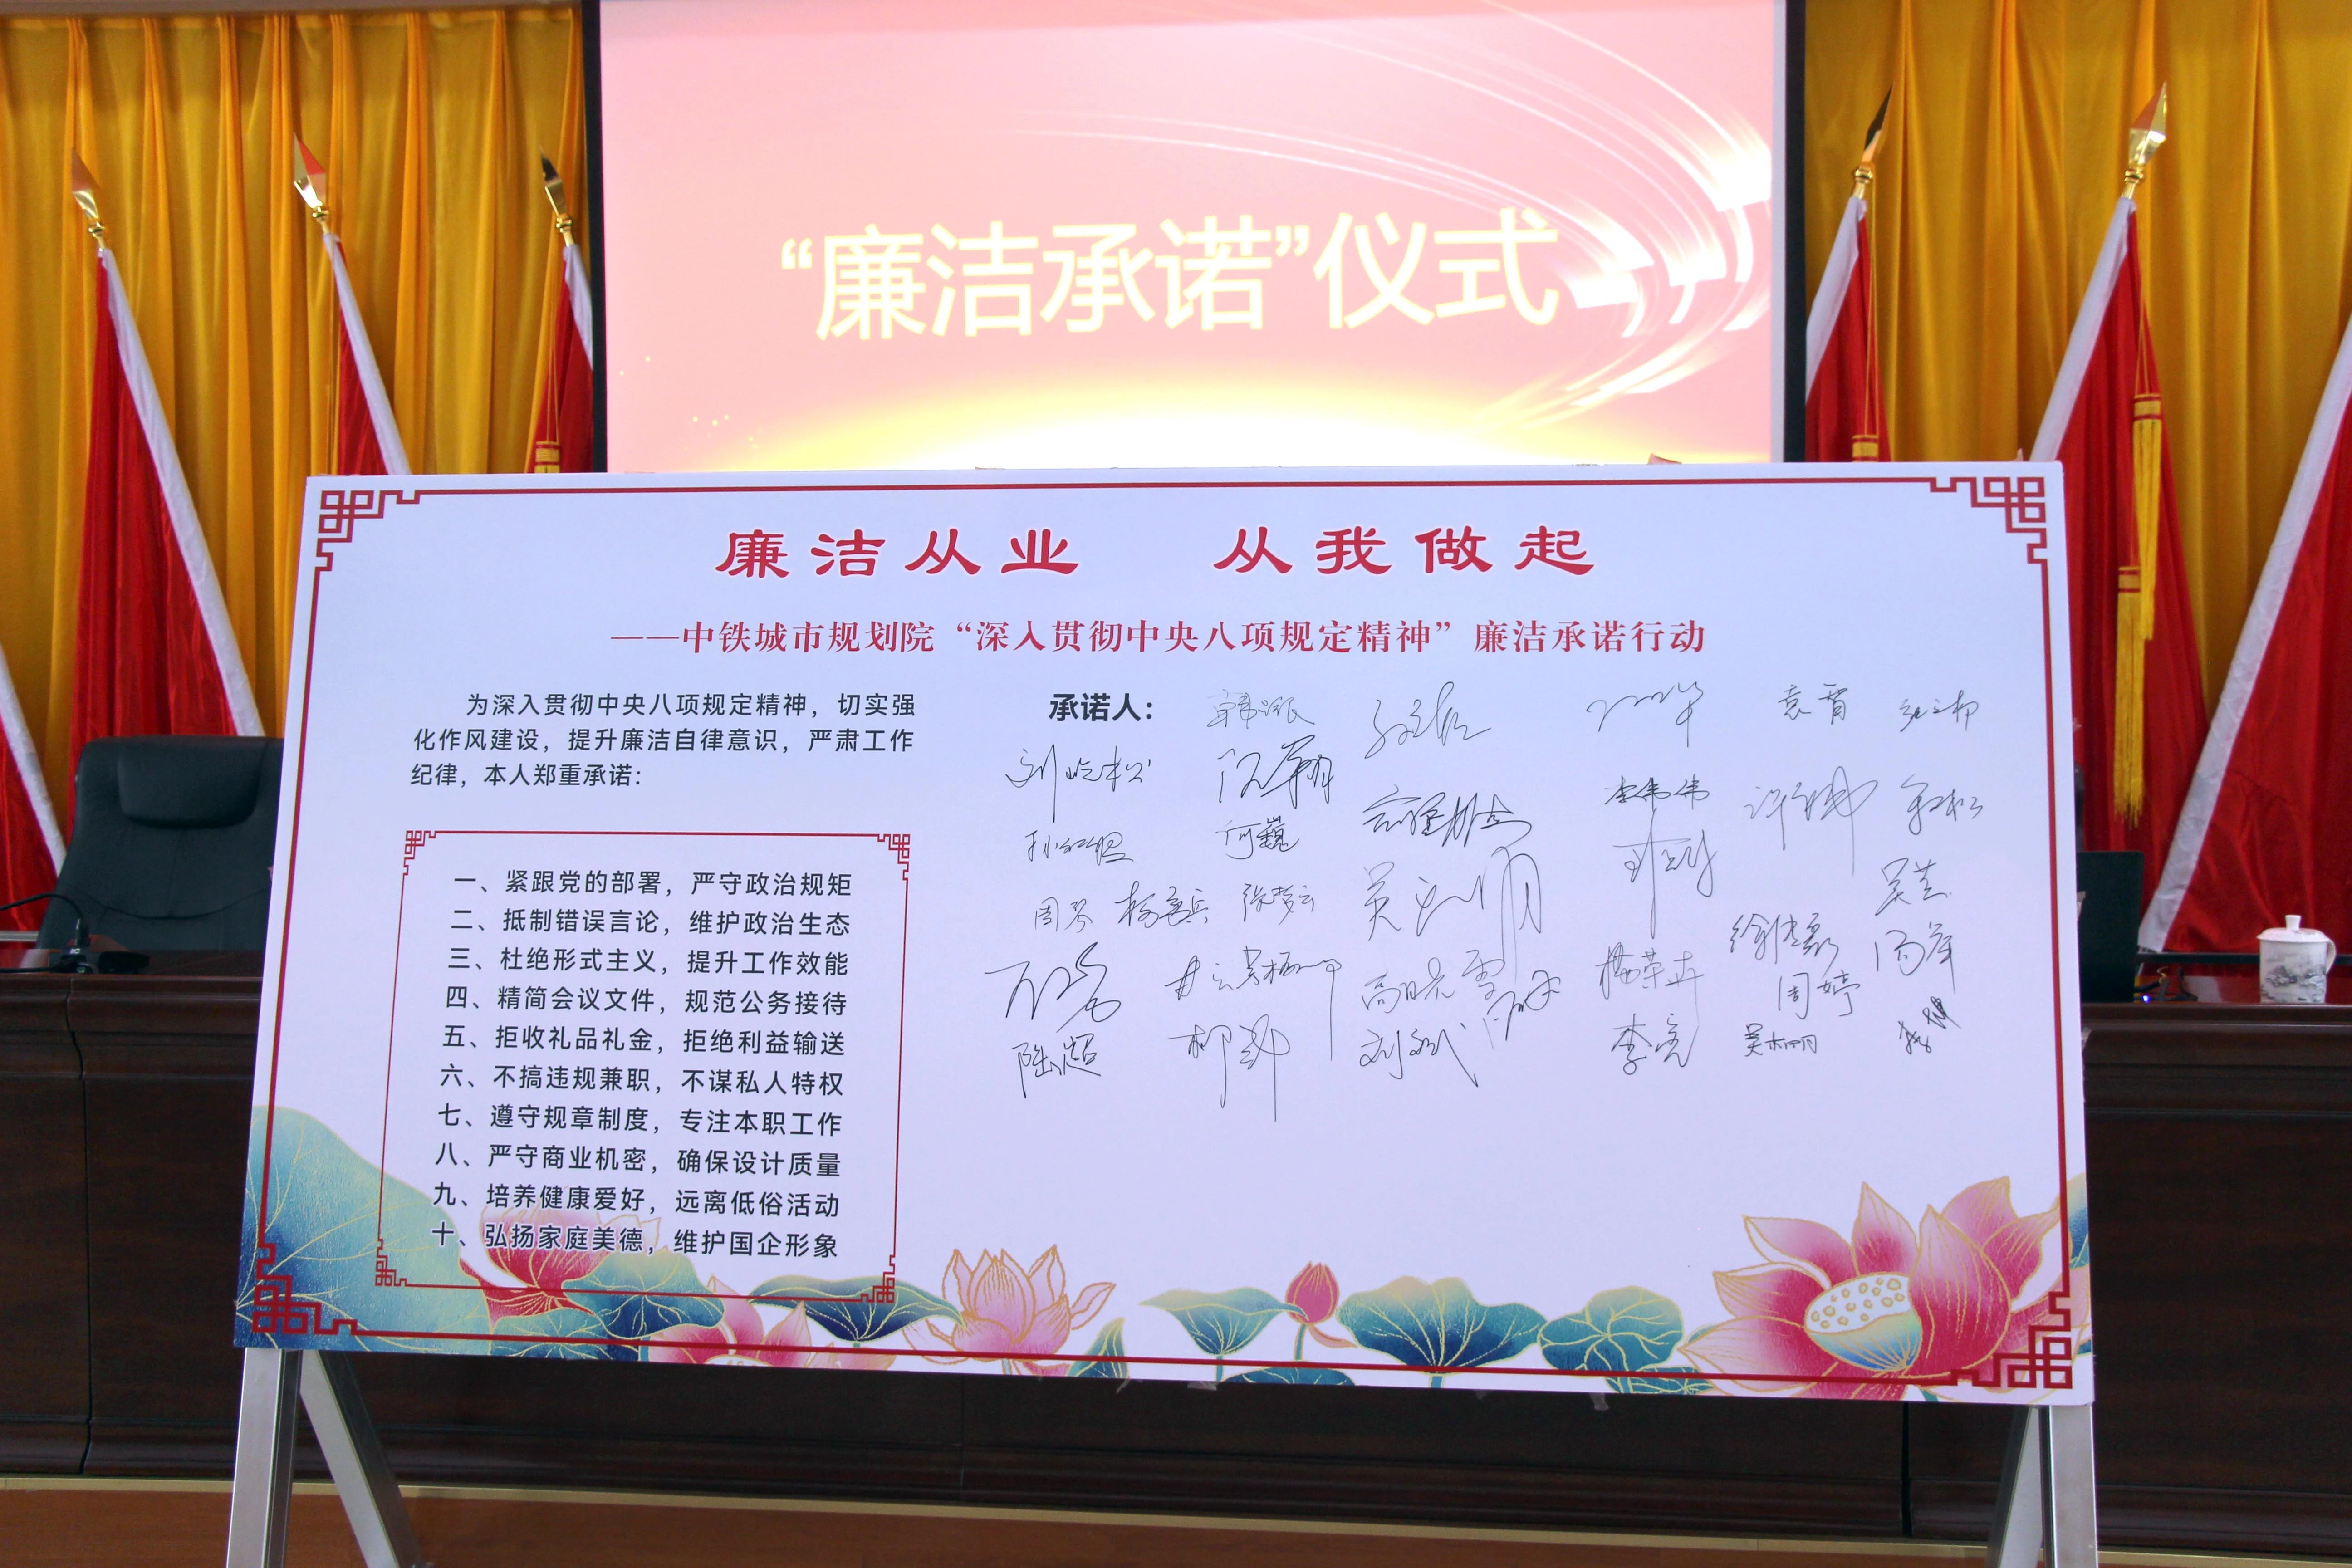 “廉洁承诺”仪式
廉洁从业 从我做起
——中铁城市规划院“深入贯彻中央八项规定精神”廉洁承诺行动
为深入贯彻中央八项规定精神，切实强
化作风建设，提升廉洁自律意识，严肃工作
纪律，本人郑重承诺：
一、紧跟党的部署，严守政治规矩
二、抵制错误言论，维护政治生态
三、杜绝形式主义，提升工作效能
四、精简会议文件，规范公务接待
五、拒收礼品礼金，拒绝利益输送
六、不搞违规兼职，不谋私人特权
七、遵守规章制度，专注本职工作
八、严守商业机密，确保设计质量
九、培养健康爱好，远离低俗活动
十、弘扬家庭美德，维护国企形象
承诺人：
袁霄
刘屹松
李伟伟
何巍
周琴
吴芸
杨荣卉
周婷
陆超
柳郑
刘斌
李亮